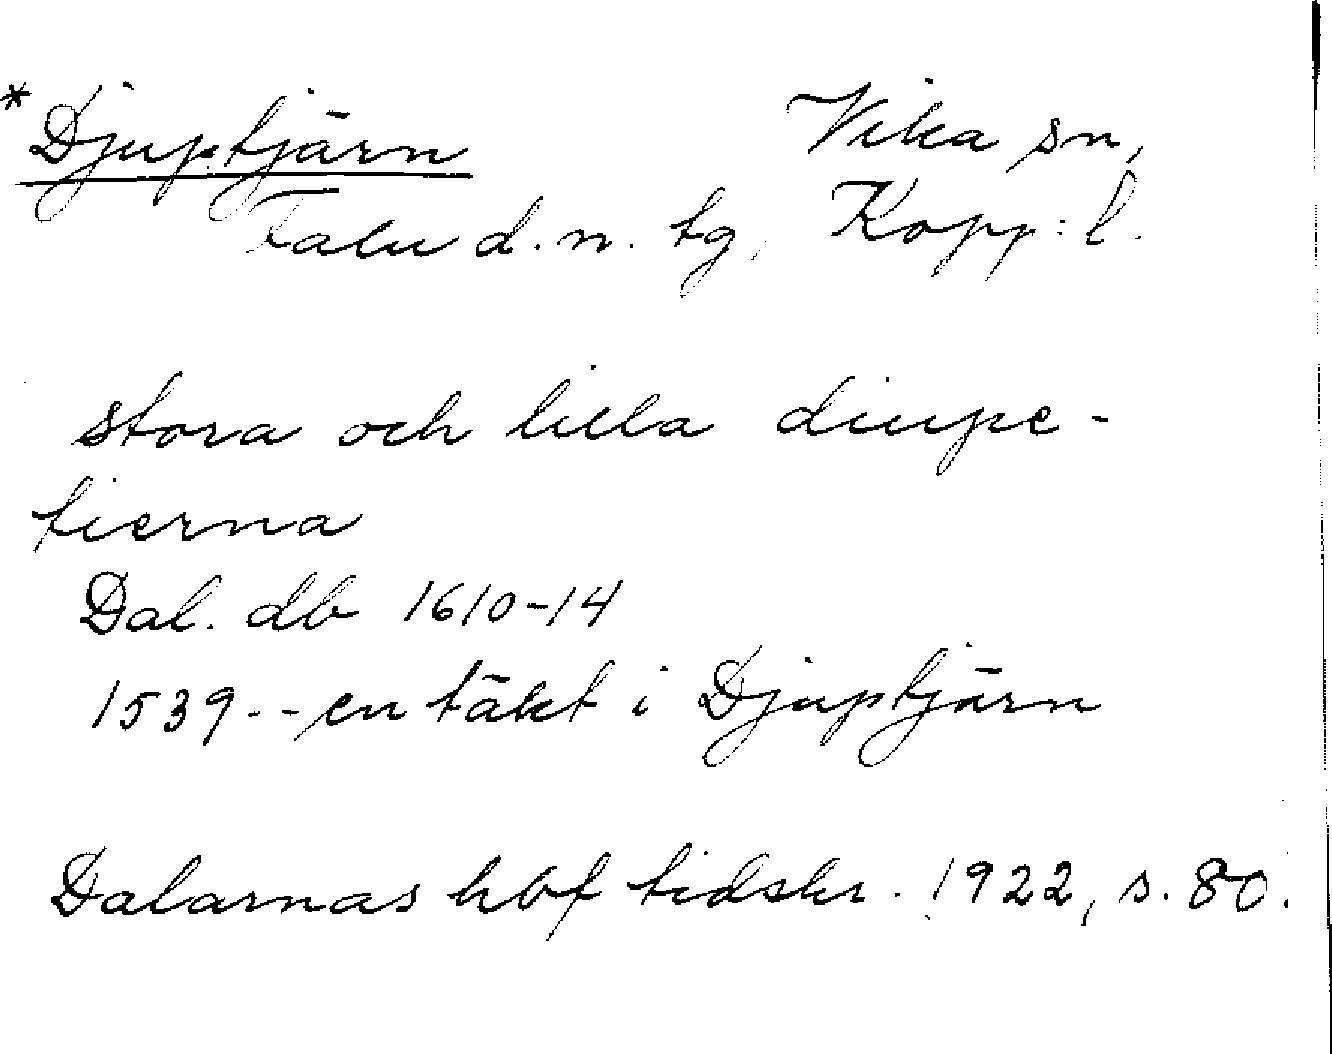 *Djuptjärn Vika sn,
Falu d. n. tg, Kopp: l.
stora och lilla diupe-
tierna
Dal. db 1610-14
1539 - - en täkt i Djuptjärn
Dalarnas hbf tidskr. 1922, s. 80.